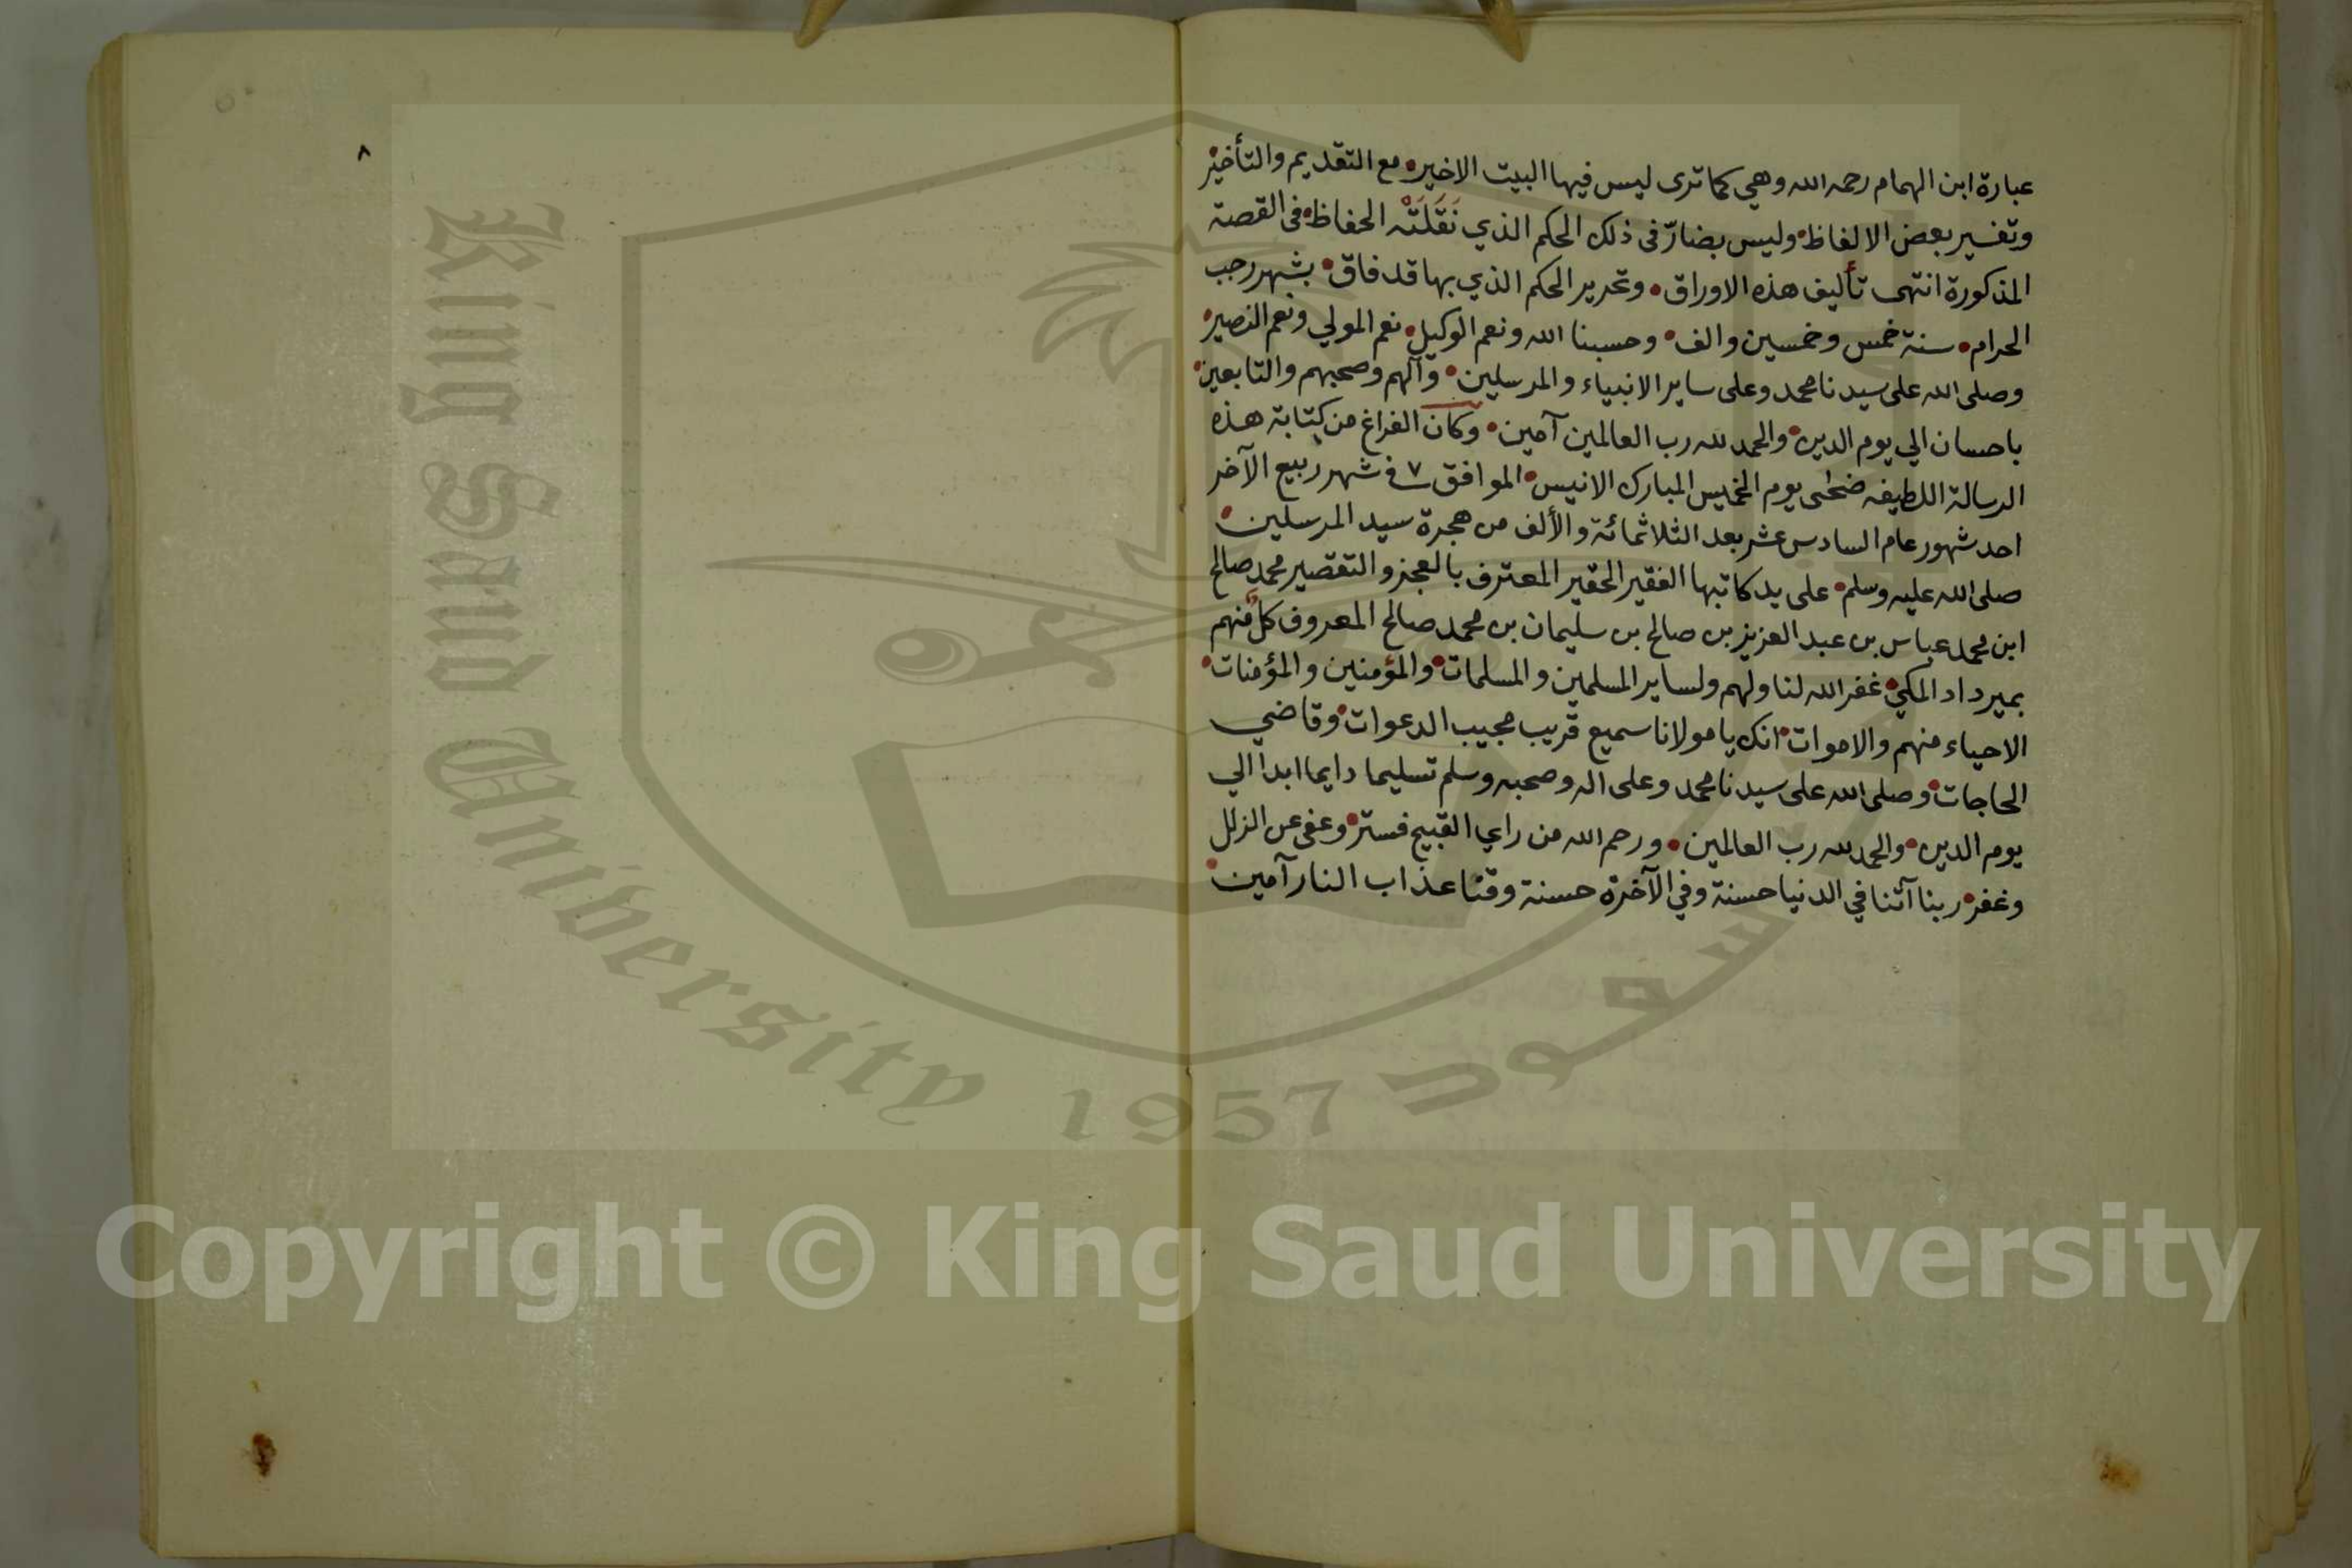 عبارة ابن الهمام رحمه الله وهي كما ترى ليس فيها البيت الاخير• مع التقديم والتأخير•
وتفسير بعض الالفاظ• وليس بضارّ فى ذلك الحكم الذي نَقَلَتْه الحفاظ• فى القصة
المذكورة انتهى تأليف هذه الاوراق• وتحرير الحكم الذي بها قد فاق• بشهر رجب
الحرام• سنة خمس وخمسين والف• وحسبنا الله ونعم الوكيل• نعم المولي ونعم النصير•
وصلى الله على سيدنا محمد وعلى ساير الانبياء والمرسلين• وآلهم وصحبهم والتابعين•
باحسان الي يوم الدين• والحمد لله رب العالمين آمين• وكان الفراغ من كتابة هذه
الرسالة اللطيفه ضحى يوم الخميس المبارك الانيس• الموافق ٧ في شهر ربيع الآخر
احد شهور عام السادس عشر بعد الثلاثمائة والألف من هجرة سيد المرسلين•
صلى الله عليه وسلم• على يد كاتبها الفقير الحقير المعترف بالعجز والتقصير محمد صالح
ابن محمد عباس بن عبد العزيز بن صالح بن سليمان بن محمد صالح المعروف كلٌ منهم
بميرداد المكي• غفر الله لنا ولهم ولساير المسلمين والمسلمات• والمؤمنين والمؤمنات•
الاحياء منهم والاموات• انك يا مولانا سميع قريب مجيب الدعوات• وقاضي
الحاجات• وصلى الله على سيدنا محمد وعلى اله وصحبه وسلم تسليما دايما ابدا الي
يوم الدين• والحمد لله رب العالمين• ورحم الله من راي القبيح فستر• وعفى عن الزلل
وغفر• ربنا آتنا في الدنيا حسنة وفي الآخرة حسنة وقنا عذاب النار آمين•
٨
King Saud University 1957
سعود
Copyright © King Saud University